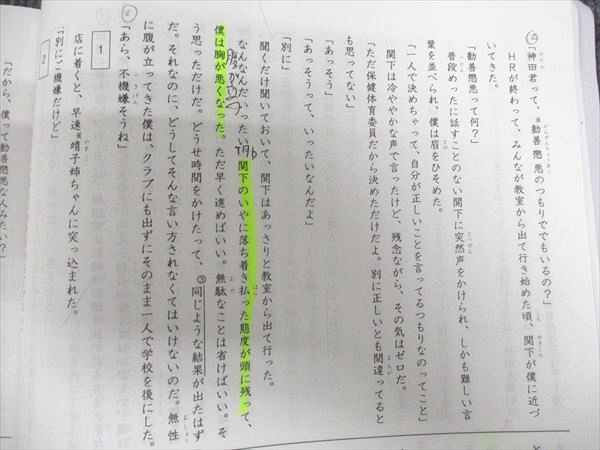 「神田君って、※勧善懲悪のつもりででもいるの？」
HRが終わって、みんなが教室から出て行き始めた頃、関下が僕に近づ
いてきた。
「勧善懲悪って何？」
普段めったに話すことのない関下に突然声をかけられ、しかも難しい言
葉を並べられ、僕は眉をひそめた。
「一人で決めちゃって、自分が正しいことを言ってるつもりなのってこと」
関下は冷ややかな声で言ったけど、残念ながら、その気はゼロだ。
「ただ保健体育委員だから決めただけだよ。別に正しいとも間違ってると
も思ってない」
「あっそう」
「あっそうって、いったいなんだよ」
「別に」
聞くだけ聞いておいて、関下はあっさりと教室から出て行った。
なんなんだ、いったい。関下のいやに落ち着き払った態度が頭に残って、
僕は胸が悪くなった。ただ早く進めばいい。無駄なことは省けばいい。そ
う思っただけだ。どうせ時間をかけたって、③同じような結果が出たはず
だ。それなのに、どうしてそんな言い方されなくてはいけないのだ。無性
に腹が立ってきた僕は、クラブにも出ずにそのまま一人で学校を後にした。
「あら、不機嫌そうね」
1
店に着くと、早速※靖子姉ちゃんに突っ込まれた。
「別にご機嫌だけど」
2
「だから、僕って勧善懲悪な人みたい？」